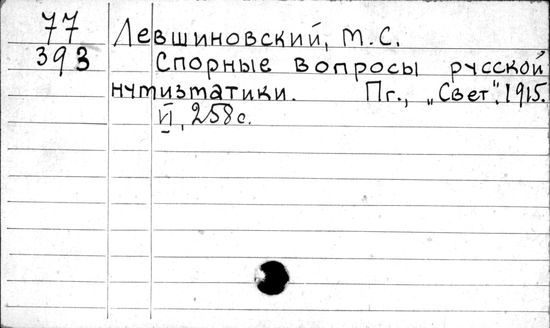 77
393
Левшиновский, М.С.
Спорные вопросы русской
нумизматики. Пг., „Свет". 1915.
VI, 258с.